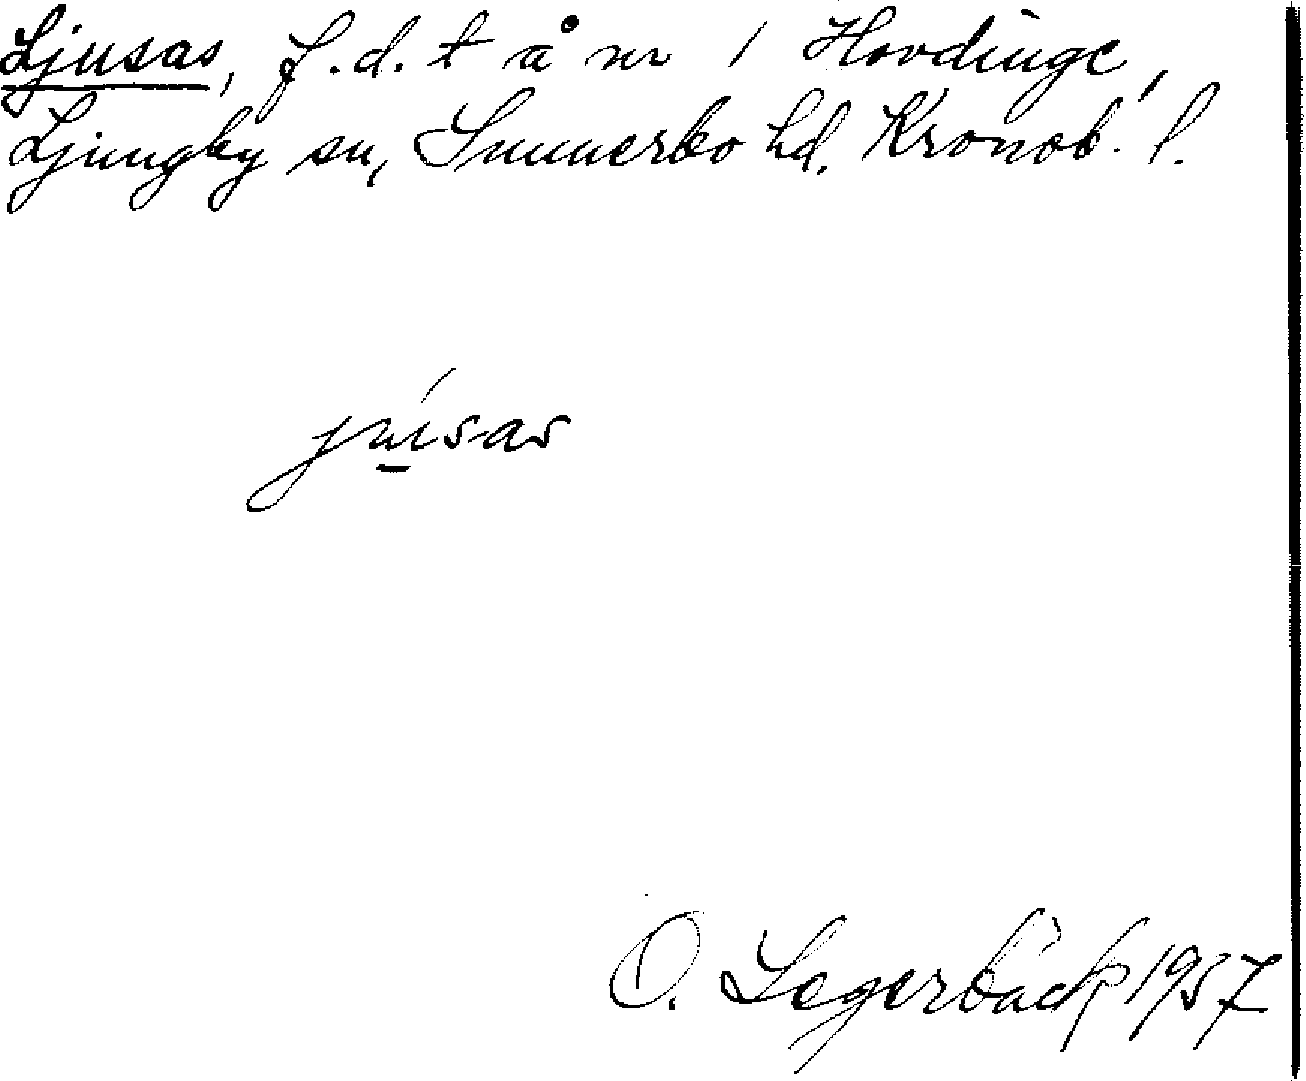 Ljusas, f.d. t å nr 1 Hovdinge,
Ljungby sn, Sunnerbo hd. Kronob. l.
júsas
O. Segerbäck 1957